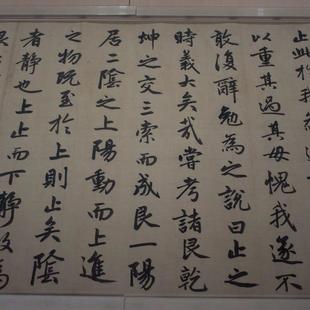 止此於我為
以重其過其毋愧我遂不
敢復辭勉為之說曰止之
時義大矣哉嘗考諸艮乾
坤之交三索而成艮一陽
居二陰之上陽動而上進
之物既至於上則止矣陰
者靜也上止而下靜故為